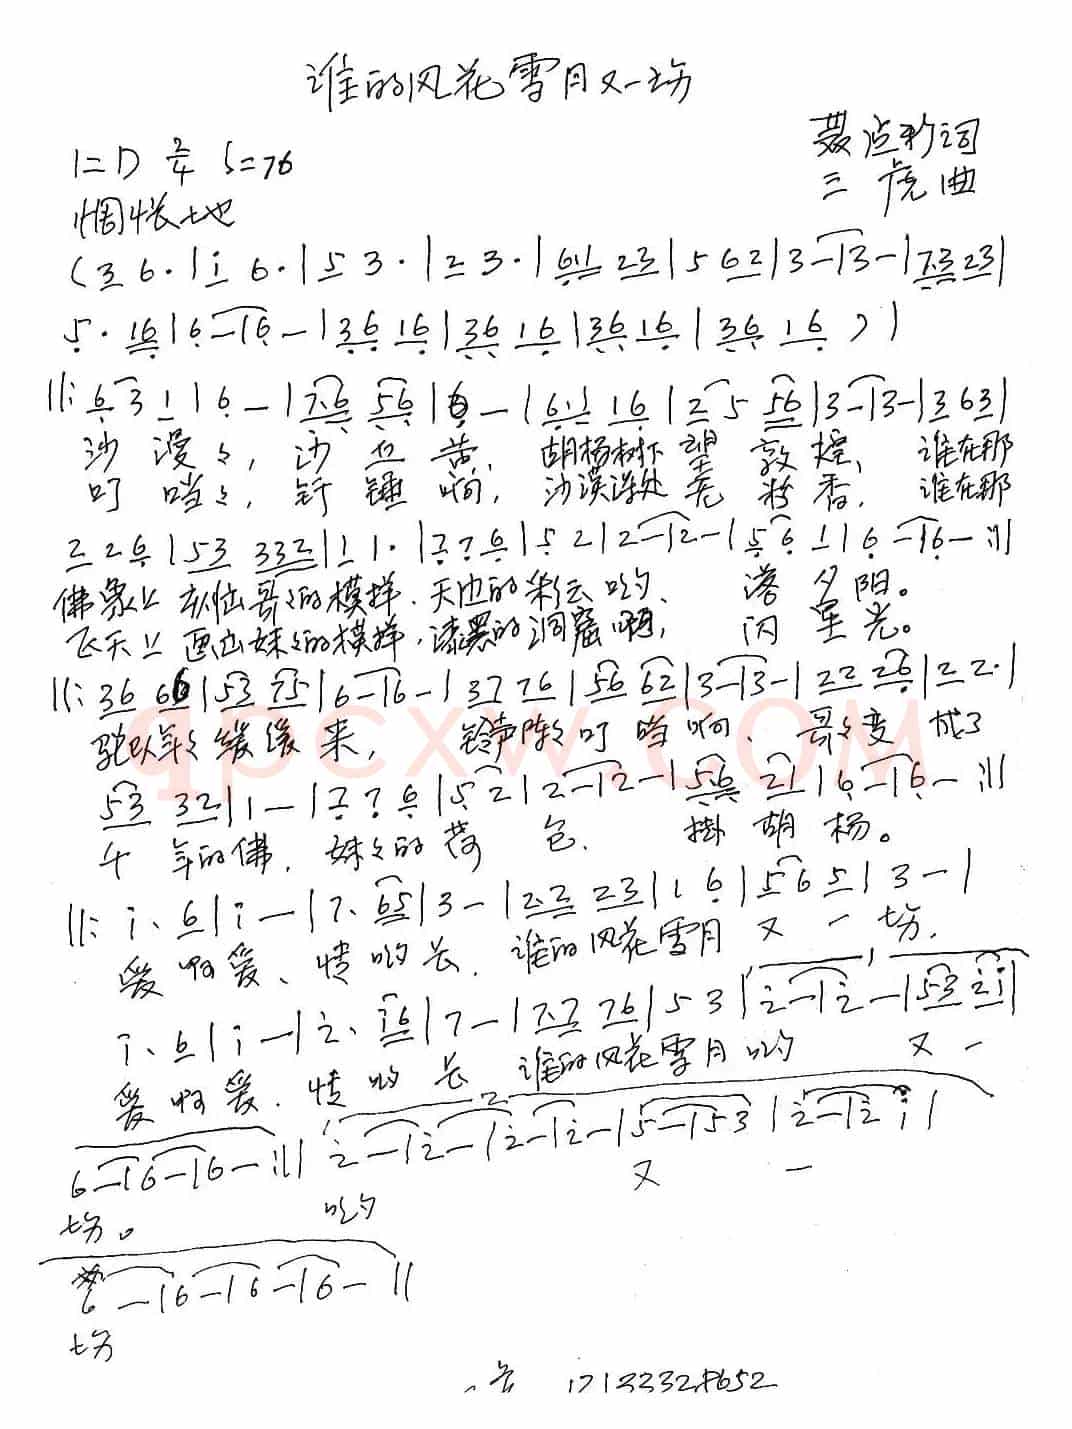 谁的风花雪月又一场
1=D 2/4 ♩=76
词
三虎曲
惆怅地
(3 6·|i 6·|5 3·|2 3·|6·1 23|5 62|3-|3-|7·3 23|
5·16|6-|6-|36 16|36 16|36 16|36 16)|
||:6 3 1|6-|7·6 56|6-|6·1 16|2 5 56|3-|3-|3 63|
沙漫々，沙也苦，胡杨树下望敦煌，谁在那
叮噹々，钎锤响，沙漠深处无粉香，谁在那
2 26|53 332|1 1·|7 7 6|5 2|2-|2-|5 6 1|6-|6-:||
佛象上刻出哥々的模样，天边的彩云哟、落夕阳。
飞天上画出妹々的模样，漆黑的洞窟啊，闪星光。
||:36 66|53 75|6-|6-|37 76|56 62|3-|3-|22 26|2 2·|
驼队年々缓缓来，铃声阵々叮当响、哥々变成了
53 32|1-|7 7 6|5 2|2-|2-|5·6 21|6-|6-:||
千年的佛，妹々的荷包、掛胡杨。
||:i·6|i-|7·65|3-|2·2 23|1 6|5 6 5|3-|
爱啊爱、情哟长，谁的风花雪月又一场，
i·6|i-|2·i6|7-|7·7 76|5 3|2-|2-|53 2i|
爱啊爱，情哟长 谁的风花雪月哟 又一
6-|6-|6-:|| 2-|2-|2-|2-|5-|5 3|2-|2 i|
场。 哟 又 一
6-|6-|6-|6-||
场